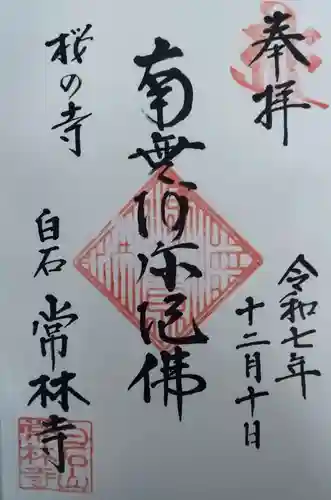 奉拝
令和七年
十二月十日
南無阿弥陀佛
桜の寺
白石
常林寺